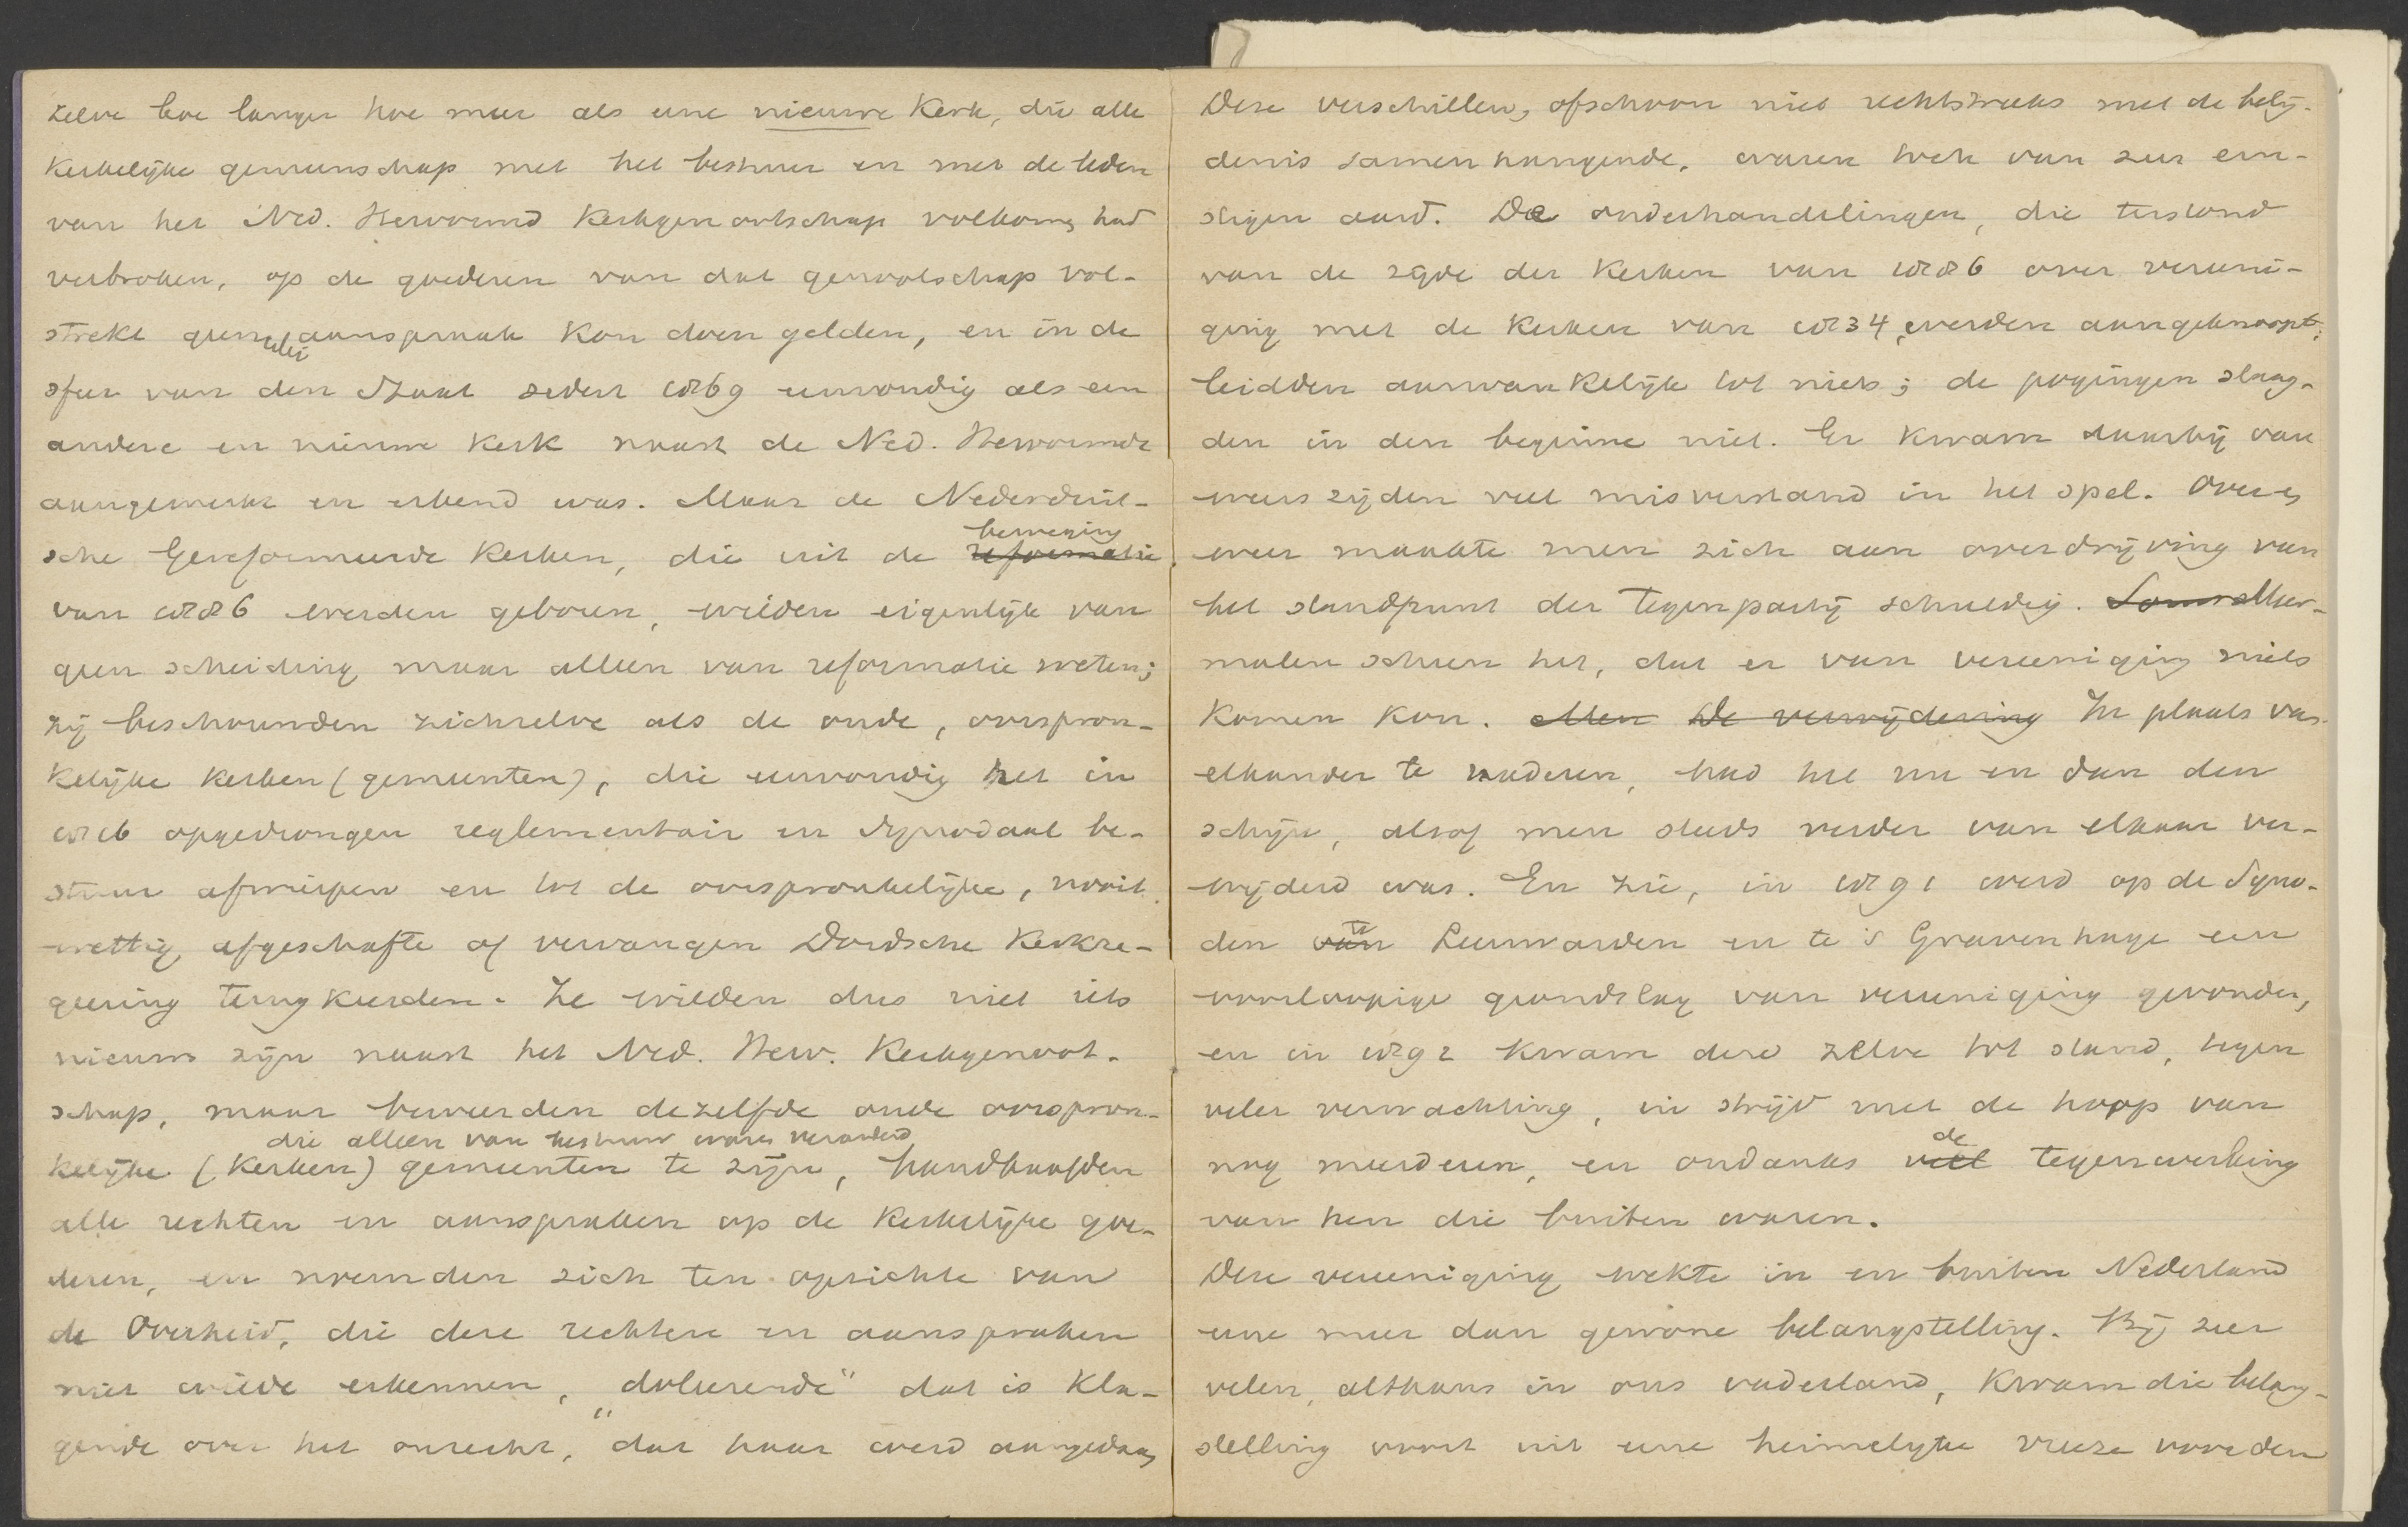 zelve hoe langer hoe meer als eene nieuwe Kerk, die alle
Kerkelijke gemeenschap met het bestuur en met de leden
van het Ned. Hervormd Kerkgenootschap volkomen had
verbroken, op de goederen van dat genootschap vol-
strekt geenerlei aanspraak kon doen gelden, en in de
sfeer van den Staat sedert 1869 eenvoudig als een
andere en nieuwe Kerk naast de Ned. Hervormde
aangemerkt en erkend was. Maar de Nederduit-
sche Gereformeerde Kerken, die uit de reformatie beweging
van 1886 werden geboren, wilden eigenlijk van
geen scheiding maar alleen van reformatie weten;
zij beschouwden zichzelve als de oude, oorspron-
kelijke Kerken (gemeenten), die eenvoudig het in
1816 opgedrongen reglementair en synodaal be-
stuur afwierpen en tot de oorspronkelijke, nooit
wettig afgeschafte of vervangen Dordsche Kerkre-
geering terugkeerden. Ze wilden dus niet iets
nieuws zijn naast het Ned. Herv. Kerkgenoot-
schap, maar beweerden dezelfde oude oorspron-
kelijke (Kerken) gemeenten te zijn, die alleen van bestuur waren veranderd, handhaafden
alle rechten en aanspraken op de Kerkelijke goe-
deren, en noemden zich ten opzichte van
de Overheid, die deze rechten en aanspraken
niet wilde erkennen, "doleerende" dat is Kla-
gende over het onrecht, dat haar werd aangedaan,
Deze verschillen, ofschoon niet rechtstreeks met de belij-
denis samenhangende, waren toch van zeer ern-
stigen aard. De onderhandelingen, die terstond
van de zijde der Kerken van 1886 over vereeni-
ging met de Kerken van 1834 werden aangeknoopt,
leidden aanvankelijk tot niets; de pogingen slaag-
den in den beginne niet. Er kwam daarbij van
weerszijden veel misverstand in het spel. Over en
weer maakte men zich aan overdrijving van
het standpunt der tegenpartij schuldig. Soms Meer-
malen scheen het, dat er van vereeniging niets
komen kon. Men De verwijdering In plaats van
elkander te naderen, had het nu en dan den
schijn, alsof men steeds verder van elkaar ver-
wijderd was. En zie, in 1891 werd op de Syno-
den van te Leeuwarden en te 's Gravenhage een
voorloopige grondslag van vereeniging gevonden,
en in 1892 kwam deze zelve tot stand, tegen
veler verwachting, in strijd met de hoop van
nog meerderen, en ondanks veel de tegenwerking
van hen die buiten waren.
Deze vereeniging wekte in en buiten Nederland
eene meer dan gewone belangstelling. Bij zeer
velen, althans in ons vaderland, kwam die belang-
stelling voort uit eene heimelijke vreeze voor den